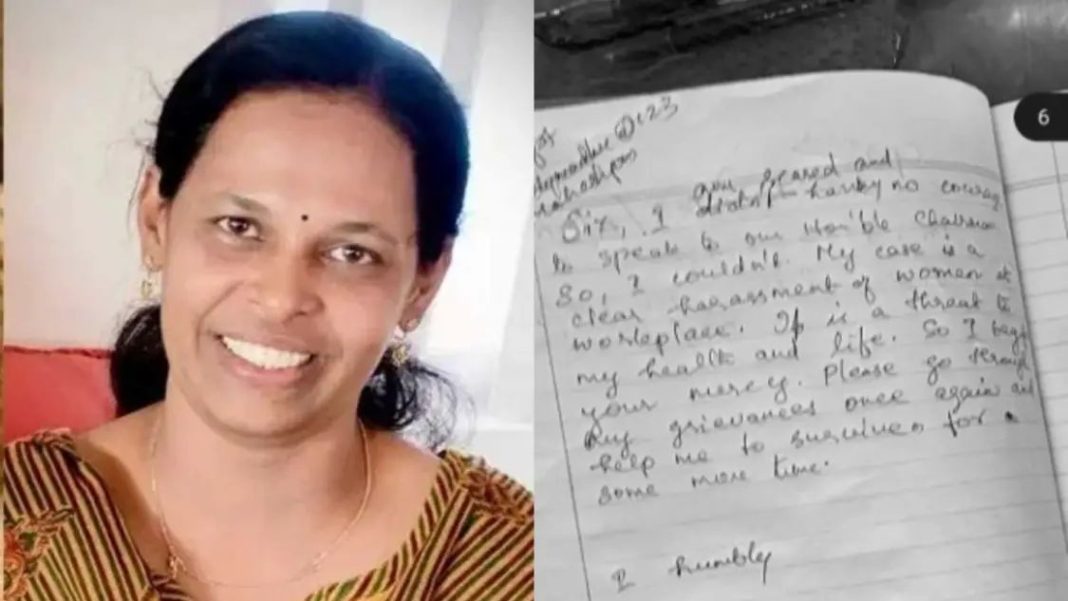 6
Sir, I am scared and
having no courage
to speak to our Hon'ble Chairman
So, I couldn't. My case is a
clear harassment of women at
workplace. It is a threat to
my health and life. So I
your mercy. Please go through
my grievances once again and
help me to for
some more time.
I humbly